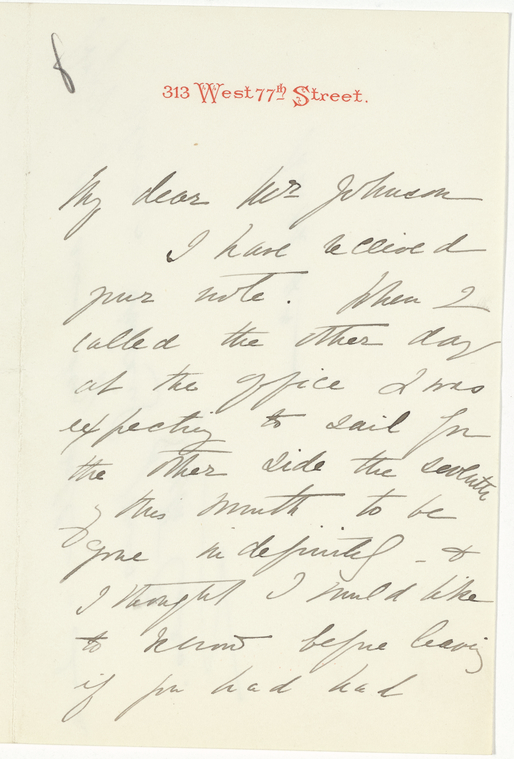 313 West 77th Street.
My dear Mr Johnson
I have received
your note. When I
called the other day
at the office I was
expecting to sail for
the other side the seventh
of this month to be
gone indefinitely - &
I thought I would like
to know before leaving
if you had had